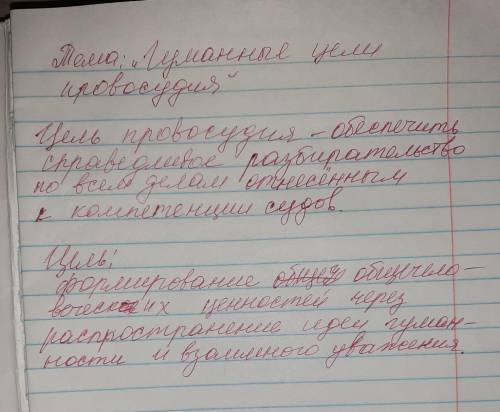 Тема: „Гуманные цели
провосудия"
Цель провосудия - обеспечить
справедливое разбирательство
по всем делам отнесённым
к компетенции судов.
Цель:
формирование общечело-
веческих ценностей через
распространение идей гуман-
ности и взаимного уважения.